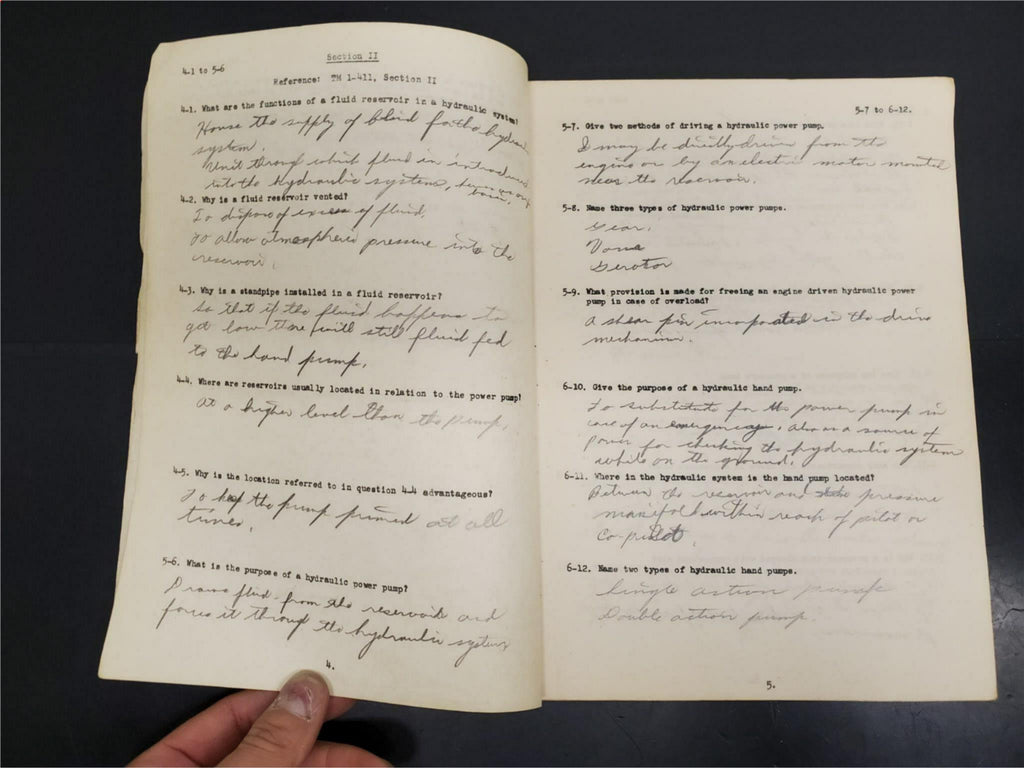 Section II
4-1 to 5-6
Reference: TM 1-411, Section II
4-1. What are the functions of a fluid reservoir in a hydraulic system?
House the supply of fluid for the hydraulic
system.
Unit through which fluid is introduced
into the hydraulic system,
4-2. Why is a fluid reservoir vented?
To dispose of excess of fluid.
To allow atmospheric pressure into the
reservoir.
4-3. Why is a standpipe installed in a fluid reservoir?
So that if the fluid happens to
get low there will still fluid fed
to the hand pump.
4-4. Where are reservoirs usually located in relation to the power pump?
At a higher level than the pump.
4-5. Why is the location referred to in question 4-4 advantageous?
To keep the pump primed at all
times.
5-6. What is the purpose of a hydraulic power pump?
Draws fluid from the reservoir and
forces it through the hydraulic system
4.
5-7 to 6-12.
5-7. Give two methods of driving a hydraulic power pump.
may be directly driven from the
engine or by an electric motor mounted
near the reservoir.
5-8. Name three types of hydraulic power pumps.
Gear.
Vane
Gerotor
5-9. What provision is made for freeing an engine driven hydraulic power
pump in case of overload?
A shear pin incorporated in the drive
mechanism.
6-10. Give the purpose of a hydraulic hand pump.
To substitute for the power pump in
case of an emergency, also as a source of
power for checking the hydraulic system
while on the ground.
6-11. Where in the hydraulic system is the hand pump located?
Between the reservoir and the pressure
manifold within reach of pilot or
Co-pilot.
6-12. Name two types of hydraulic hand pumps.
Single action pump
Double action pump.
5.